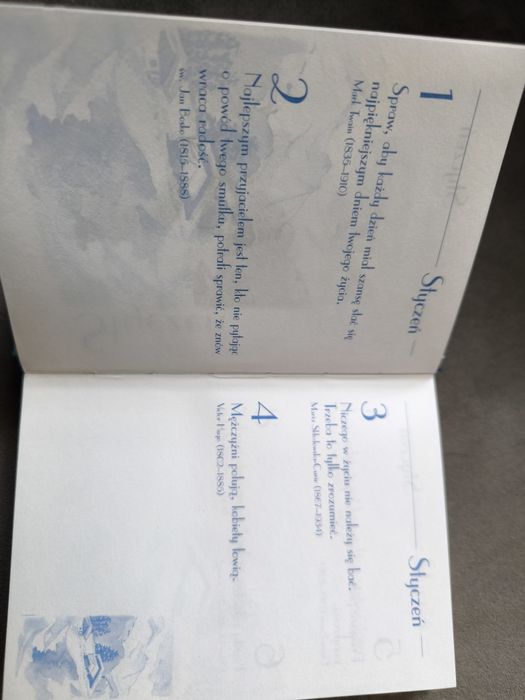 Styczeń
1
Spraw, aby każdy dzień miał szansę stać się
najpiękniejszym dniem twojego życia.
Mark Twain (1835–1910)
2
Najlepszym przyjacielem jest ten, kto nie pytając
o powód twego smutku, potrafi sprawić, że znów
wraca radość.
św. Jan Bosko (1815–1888)
Styczeń
3
Niczego w życiu nie należy się bać.
Trzeba to tylko zrozumieć.
Maria Skłodowska-Curie (1867–1934)
4
Mężczyźni polują, kobiety łowią.
Victor Hugo (1802–1885)